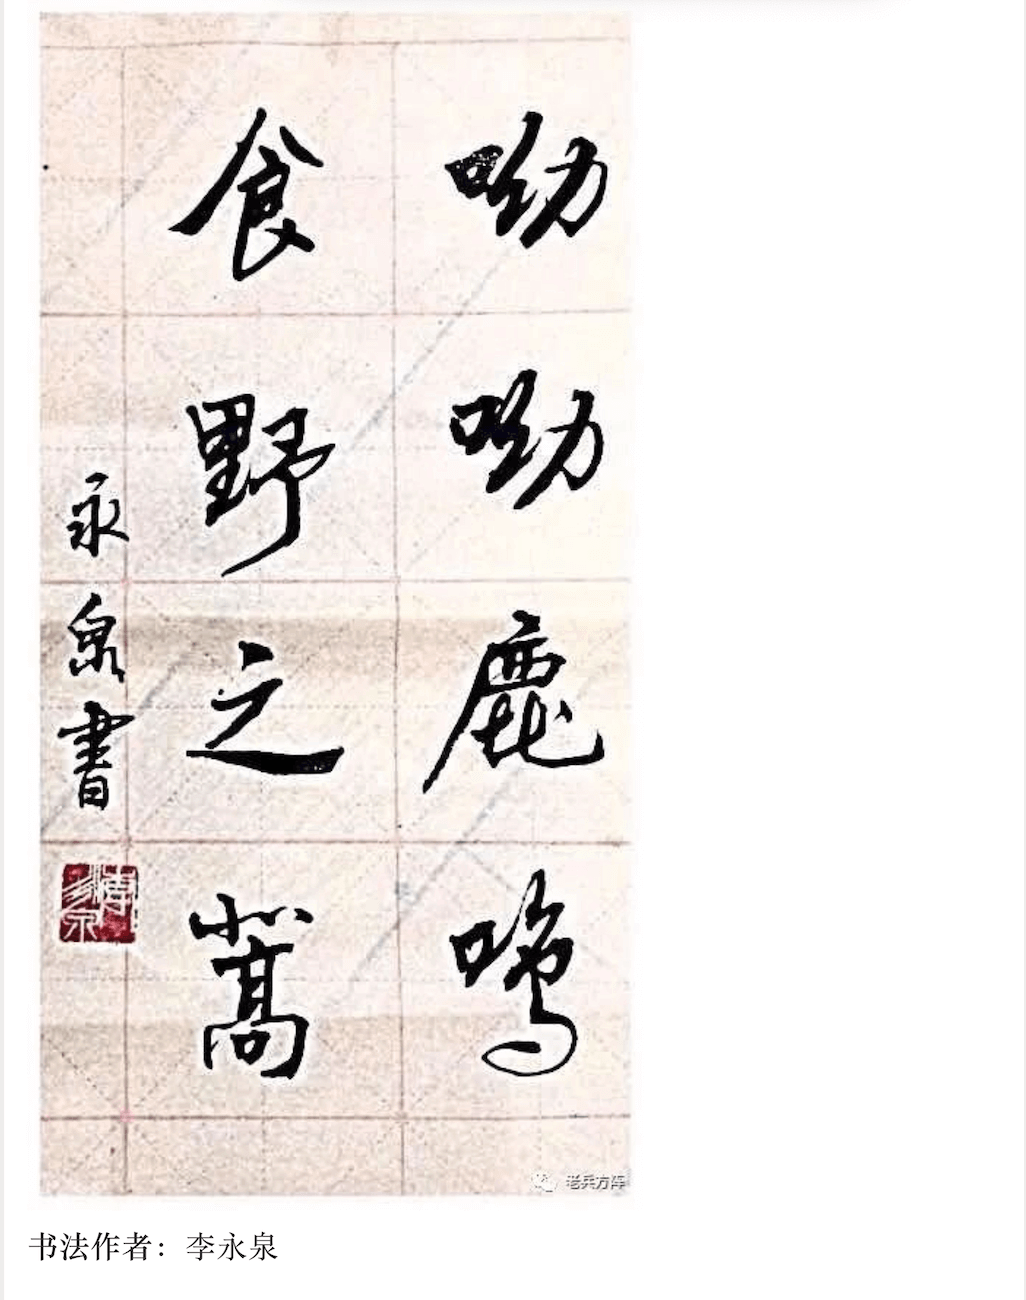 呦呦鹿鸣
食野之蒿
永泉書
老兵方阵
书法作者：李永泉